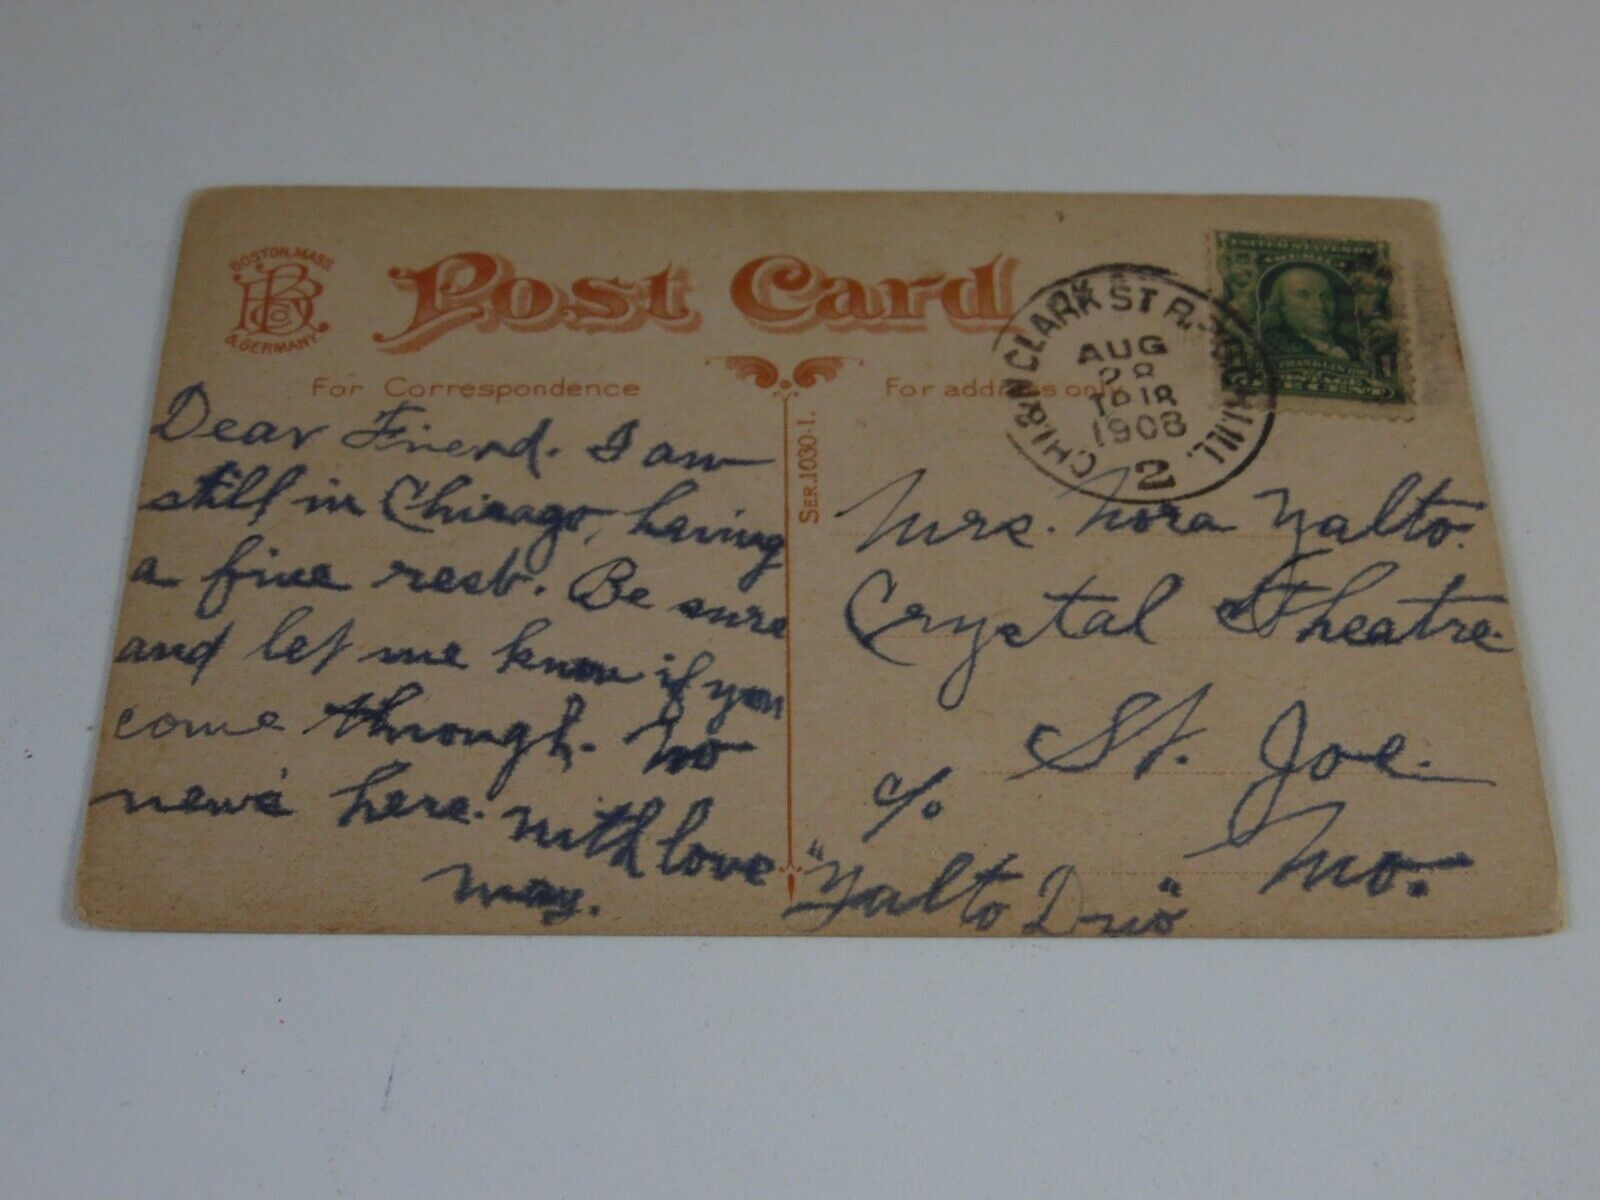 BOSTON, MASS.
& GERMANY.
Post Card
For Correspondence
For address only
SER. 1030-1.
CHI. & N. CLARK ST R.P.O. CHI. ILL.
AUG
28
1908
2
FRANKLIN
Dear Friend. I am
still in Chicago, having
a fine rest. Be sure
and let me know if you
come through. No
news here. With love
May.
Mrs. Nora Yalto.
Crystal Theatre.
St. Joe.
Mo.
c/o
"Yalto Duo"